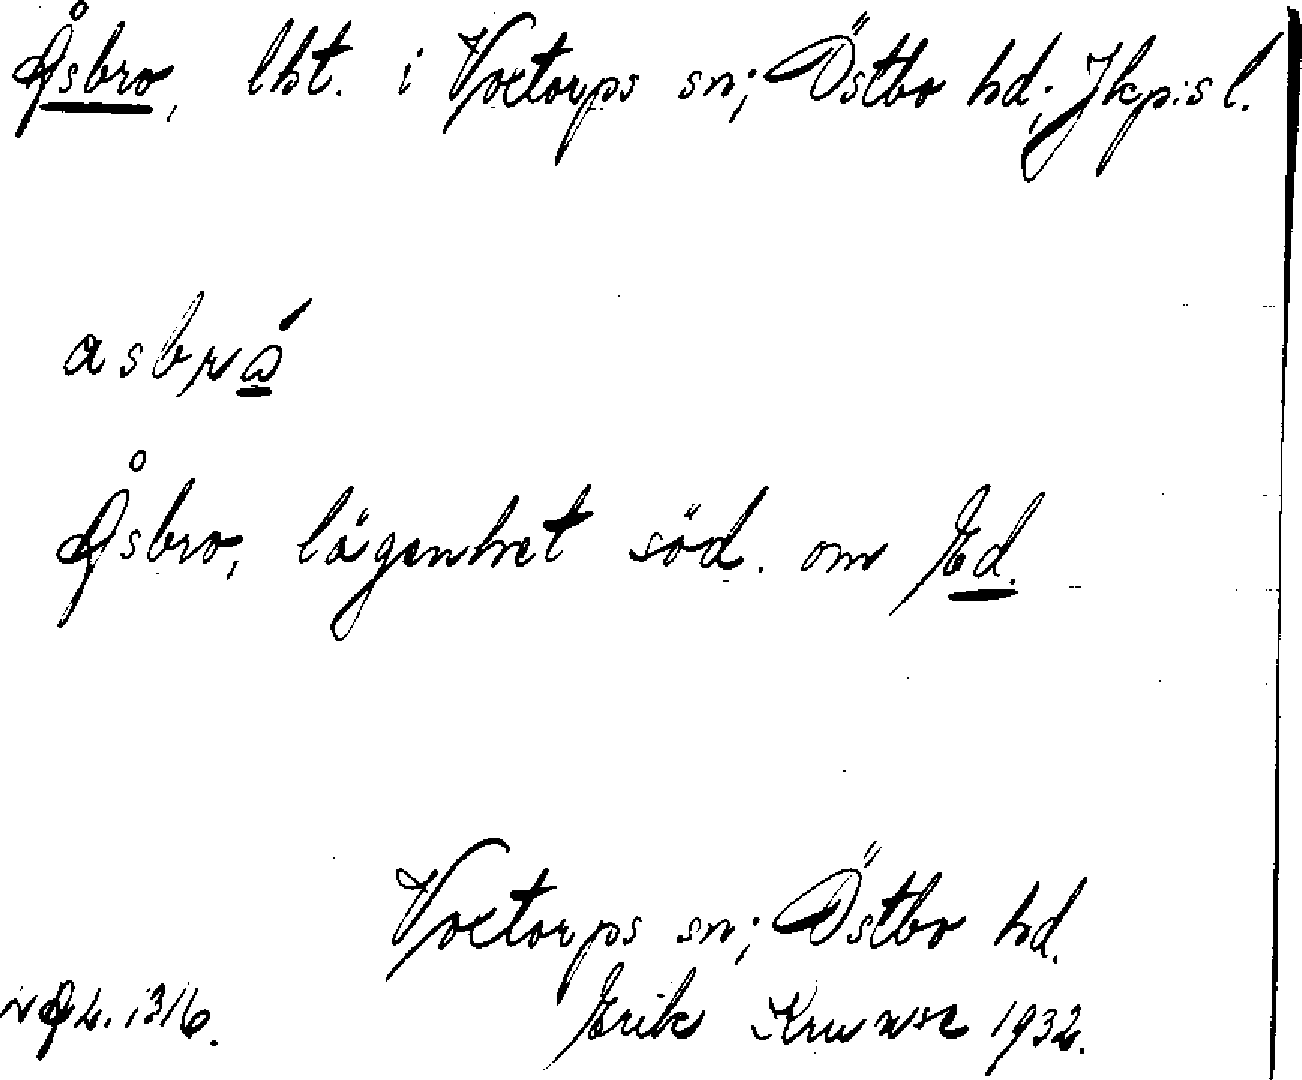 Åsbro, lht. i Voxtorps sn; Östbo hd; Jkp:s l.
Åsbro, lägenhet söd. om Ed.
Voxtorps sn; Östbo hd.
Erik 1932.